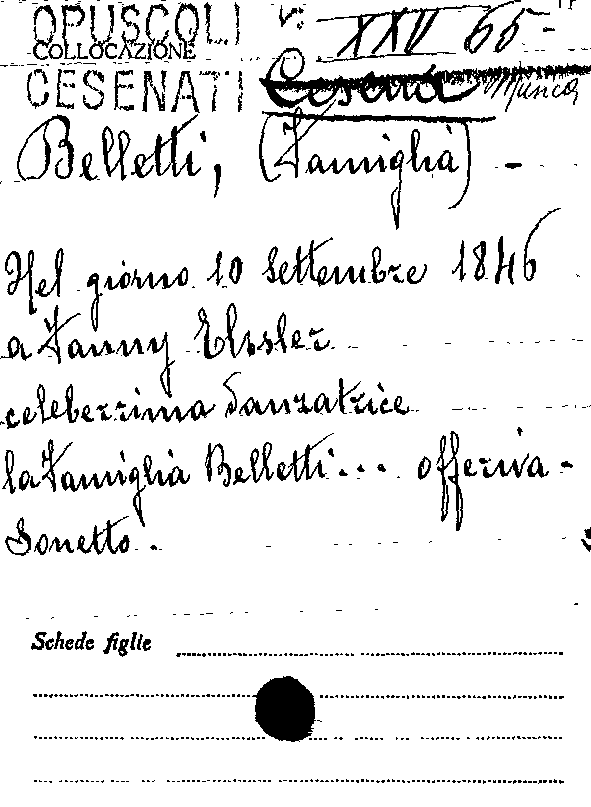 OPUSCOLI V. XXV 65-
COLLOCAZIONE
CESENATI Cesena Musica
Belletti, (Famiglia) -
Nel giorno 10 Settembre 1846
a Fanny Elssler
celeberrima danzatrice
la Famiglia Belletti... offeriva -
Sonetto.
Schede figlie